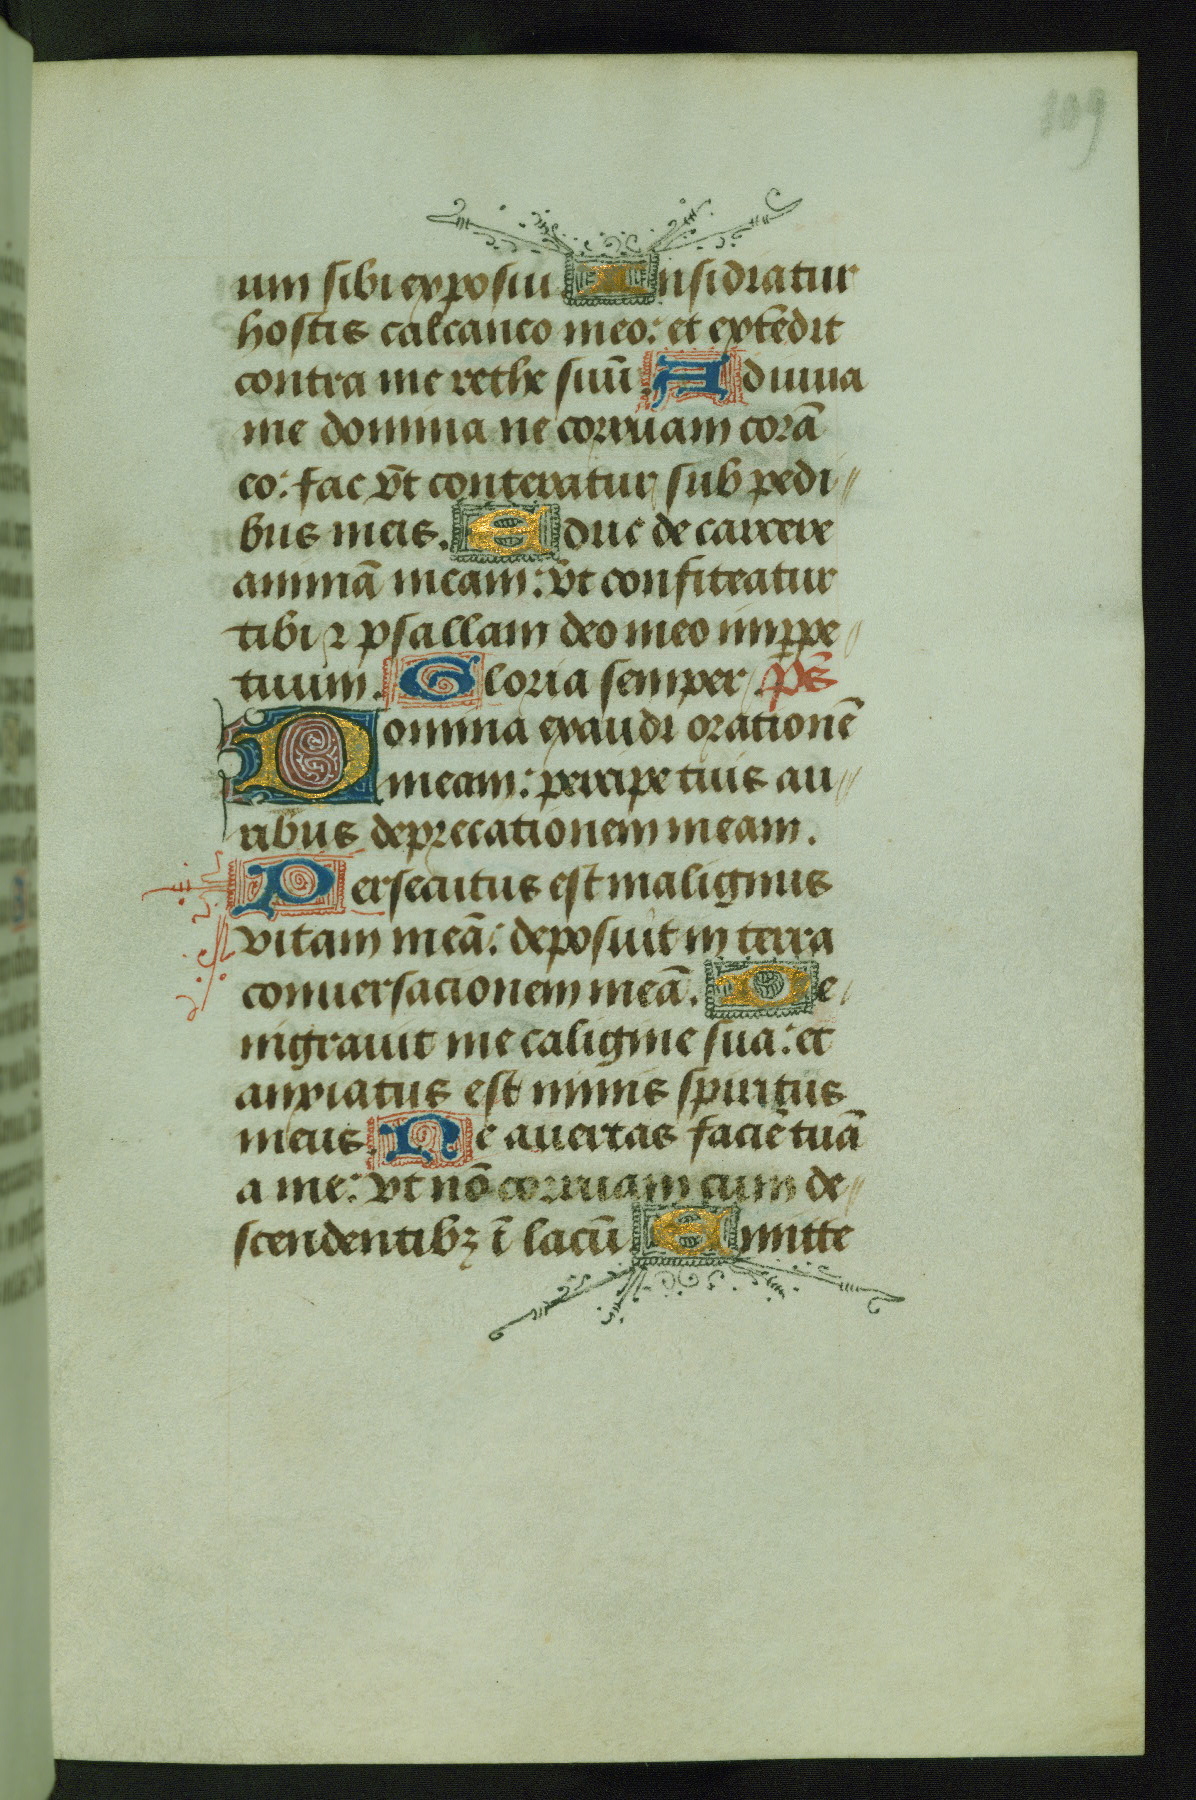 109
um sibi exposui. Insidiatur
hostis calcaneo meo: et extēdit
contra me rethe suū. Adiuua
me domina ne corruam corā
eo: fac vt conteratur sub pedi
bus meis. Educ de carcere
animā meam: vt confiteatur
tibi ⁊ psallam deo meo imppe
tuum. Gloria semper. ps̄
Domina exaudi orationē
meam: percipe tuis au
ribus deprecationem meam.
Persecutus est malignus
vitam meā: deposuit in terra
conuersacionem meā. De
nigrauit me caligine sua: et
anxiatus est nimis spiritus
meus. Ne auertas faciē tuā
a me: vt nō corruam cum de
scendentibꝫ ī lacū. Emitte